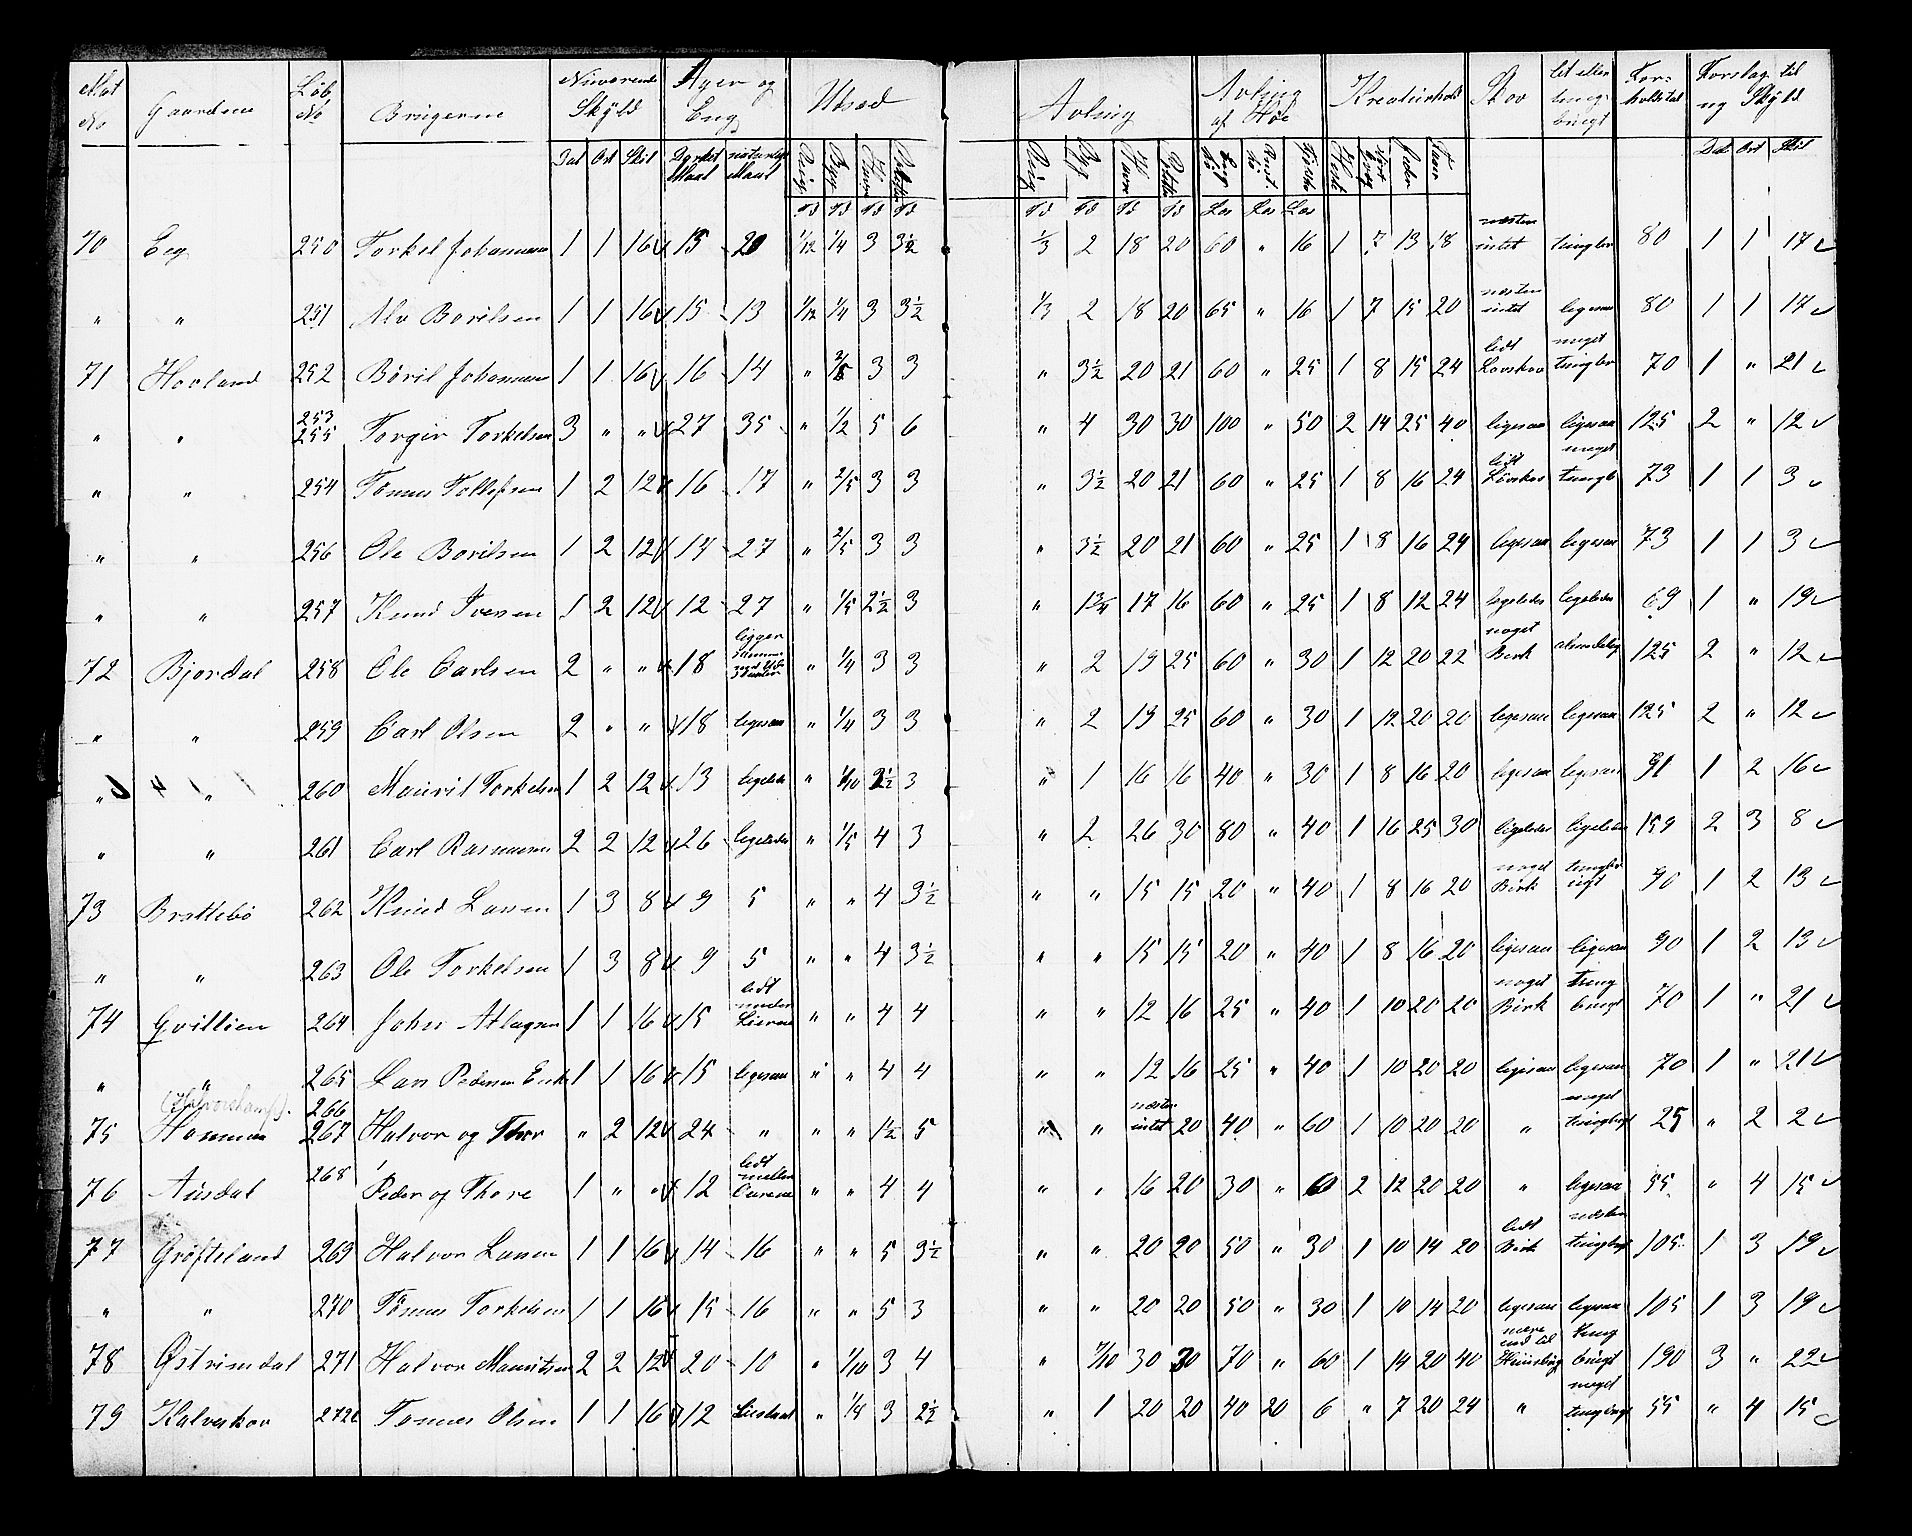 Mat No Gaardene Løb No Brugerne Nuværende Skyld Ager og Eng Udsæd Avling Avling af Høe Kreaturhold Skov let eller tungbrugt Forholdstal Forslag til ny Skyld
Dal Ort Skil Dyrket Maal naturlig Maal Rug Byg Havre Potet Rug Byg Havre Potet Eng Hø Hest Stort Qvæg Feder Faar Dal Ort Skil
Td Td Td Td Td Td Td Td Læs Læs Læs
70 Eeg 250 Torkel Johannesen 1 1 16 15 20 1/12 1/4 3 3½ 1/3 2 18 20 60 " 16 1 7 13 18 næsten intet tungbr 80 1 1 17
" " 251 Alv Borilsen 1 1 16 15 13 1/12 1/4 3 3½ 1/3 2 18 20 65 " 16 1 7 15 20 næsten intet ligesaa 80 1 1 17
71 Hovland 252 Böril Johannesen 1 1 16 16 14 " 2/5 3 3 " 3½ 20 21 60 " 25 1 8 15 24 lidt Løvskov meget tungbr 70 1 " 21
" " 253 255 Torgir Torkelsen 3 " " 27 35 " 1/2 5 6 " 4 30 30 100 " 50 2 14 25 40 ligesaa ligesaa 125 2 " 12
" " 254 Tönnes Tollefsen 1 2 12 16 17 " 2/5 3 3 " 3½ 20 21 60 " 25 1 8 16 24 lidt Løvskov meget tungbr 73 1 1 3
" " 256 Ole Borilsen 1 2 12 14 27 " 2/5 3 3 " 3½ 20 21 60 " 25 1 8 16 24 ligesaa ligesaa 73 1 1 3
" " 257 Knud Iversen 1 2 12 12 27 " 1/5 2½ 3 " 1¾ 17 16 60 " 25 1 8 12 24 ligeledes ligeledes 69 1 " 19
72 Bjordal 258 Ole Carlsen 2 " " 18 ligger " 1/4 3 3 " 2 19 25 60 " 30 1 12 20 22 noget Birk almindelig 125 2 " 12
" " 259 Carl Olsen 2 " " 18 ligesaa " 1/4 3 3 " 2 19 25 60 " 30 1 12 20 20 ligesaa ligesaa 125 2 " 12
" " 260 Mauril Torkelsen 1 2 12 13 ligeled " 1/10 2½ 3 " 1 16 16 40 " 30 1 8 16 20 ligesaa ligesaa 91 1 2 16
" " 261 Carl Rasmusen 2 2 12 26 ligeledes " 1/5 4 3 " 2 26 30 80 " 40 1 16 25 30 ligeledes ligeledes 159 2 3 8
73 Brattebö 262 Knud Larsen 1 3 8 9 5 " " 4 3½ " " 15 15 20 " 40 1 8 16 20 noget Birk tungbrugt 90 1 2 13
" " 263 Ole Torkelsen 1 3 8 9 5 " " 4 3½ " " 15 15 20 " 40 1 8 16 20 ligesaa ligesaa 90 1 2 13
74 Gvillien 264 John Atlagsen 1 1 16 15 lidt " " 4 4 " " 12 16 25 " 40 1 10 20 20 noget Birk tung brugt 70 1 " 21
" " 265 Lars Pedersen 1 1 16 15 ligesaa " " 4 4 " " 12 16 25 " 40 1 10 20 20 ligesaa ligesaa 70 1 " 21
(Halvorskamp).
75 Hommen 266 267 Halvor og Thor " 2 12 24 " " " 1½ 5 " " næsten intet 20 40 " 60 1 10 20 20 " meget tungbrgt 25 " 2 2
76 Ausdal 268 Peder og Thore 1 " " 12 lidt mellem Urene " " 4 4 " " 16 20 30 " 60 2 12 20 20 " ligesaa 55 " 4 15
77 Gröfteland 269 Halvor Larsen 1 1 16 14 16 " " 5 3½ " " 20 20 50 " 30 1 10 14 20 lidt Birk næsten tungbrgt 105 1 3 19
" " 270 Tönnes Torkelsen 1 1 16 15 16 " " 5 3 " " 20 20 50 " 30 1 10 14 20 ligesaa ligesaa 105 1 3 19
78 Østrimdal 271 Halvor Mauritsen 2 2 12 20 10 " 1/10 3 4 " 7/10 30 30 70 " 60 1 14 20 40 mere end til Huusbrug tung brugt 190 3 " 22
79 Kalveskov 272 Tönnes Olsen 1 1 16 12 " 1/4 3 2½ " 1 20 20 40 20 6 " 7 20 24 " meget 55 " 4 15